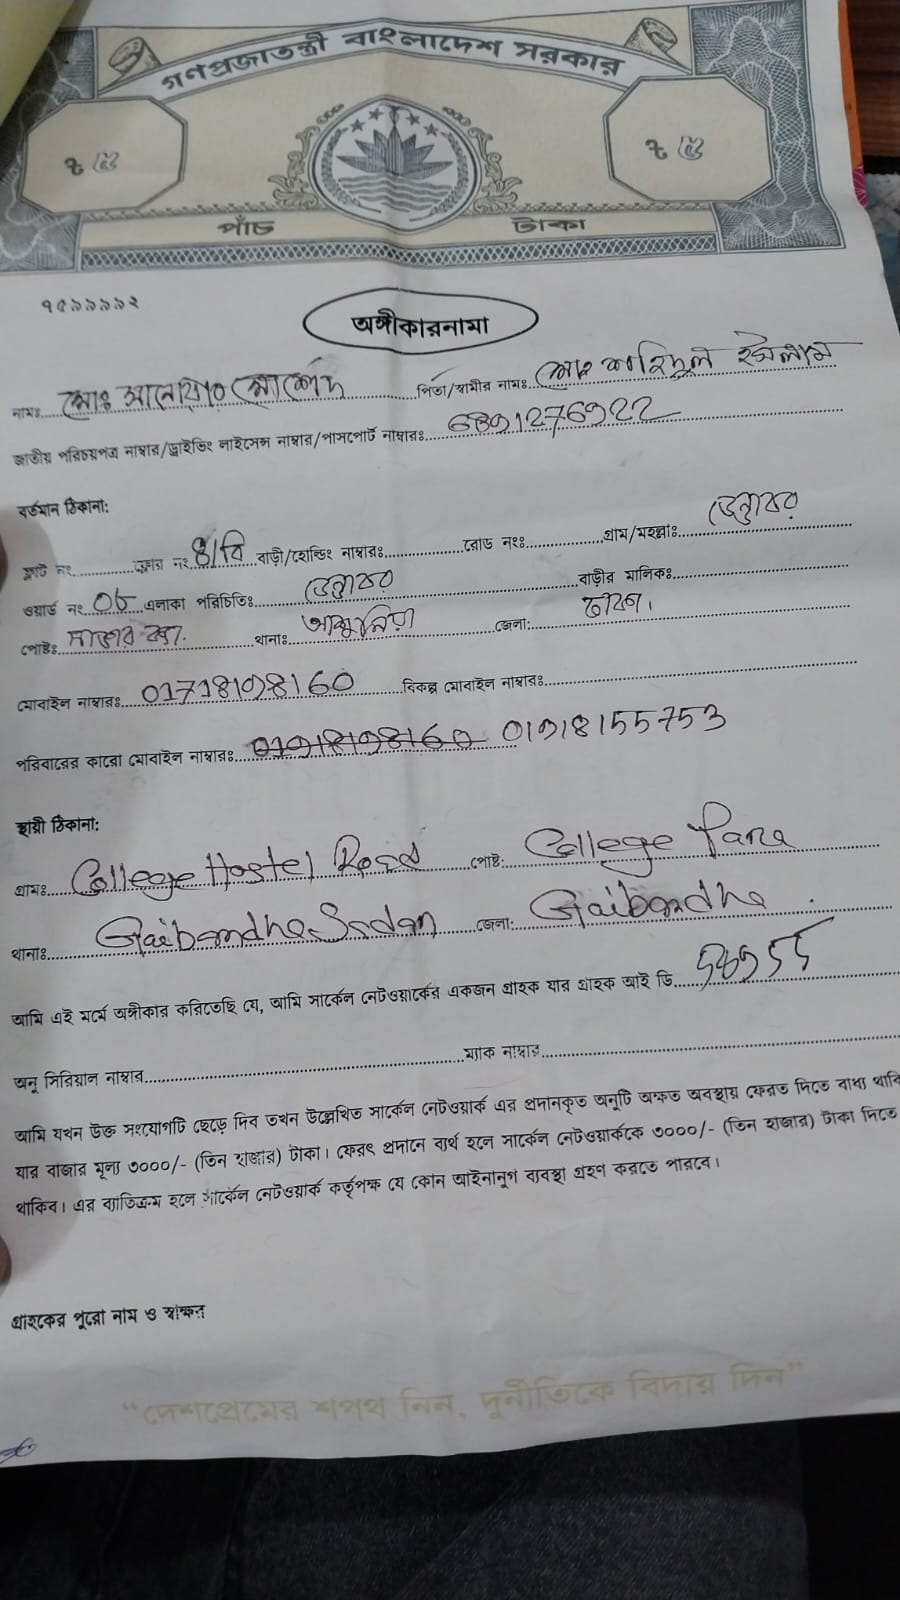 গণপ্রজাতন্ত্রী বাংলাদেশ সরকার
৳ ৫ ৳ ৫
পাঁচ টাকা
৭৫৯৯৯৯২
অঙ্গীকারনামা
নামঃ মোঃ আনোয়ার মোর্শেদ পিতা/স্বামীর নামঃ মোঃ জাহিদুল ইসলাম
জাতীয় পরিচয়পত্র নাম্বার/ড্রাইভিং লাইসেন্স নাম্বার/পাসপোর্ট নাম্বারঃ 6891276922
বর্তমান ঠিকানা:
ফ্লাট নং ফ্লোর নং ৪/বি বাড়ী/হোল্ডিং নাম্বারঃ রোড নংঃ গ্রাম/মহল্লাঃ ডেন্ডাবর
ওয়ার্ড নং 08 এলাকা পরিচিতিঃ ডেন্ডাবর বাড়ীর মালিকঃ
পোষ্টঃ থানাঃ আশুলিয়া জেলা: ঢাকা।
মোবাইল নাম্বারঃ 01718198160 বিকল্প মোবাইল নাম্বারঃ
পরিবারের কারো মোবাইল নাম্বারঃ 01918155753
স্থায়ী ঠিকানা:
গ্রামঃ College Hostel Road পোষ্ট: College Para
থানাঃ Gaibandha Sadar জেলা: Gaibandha
আমি এই মর্মে অঙ্গীকার করিতেছি যে, আমি সার্কেল নেটওয়ার্কের একজন গ্রাহক যার গ্রাহক আই ডি
অনু সিরিয়াল নাম্বার ম্যাক নাম্বার
আমি যখন উক্ত সংযোগটি ছেড়ে দিব তখন উল্লেখিত সার্কেল নেটওয়ার্ক এর প্রদানকৃত অনুটি অক্ষত অবস্থায় ফেরত দিতে বাধ্য থাকি
যার বাজার মূল্য ৩০০০/- (তিন হাজার) টাকা। ফেরৎ প্রদানে ব্যর্থ হলে সার্কেল নেটওয়ার্ককে ৩০০০/- (তিন হাজার) টাকা দিতে
থাকিব। এর ব্যাতিক্রম হলে সার্কেল নেটওয়ার্ক কর্তৃপক্ষ যে কোন আইনানুগ ব্যবস্থা গ্রহণ করতে পারবে।
গ্রাহকের পুরো নাম ও স্বাক্ষর
“দেশপ্রেমের শপথ নিন, দুর্নীতিকে বিদায় দিন”